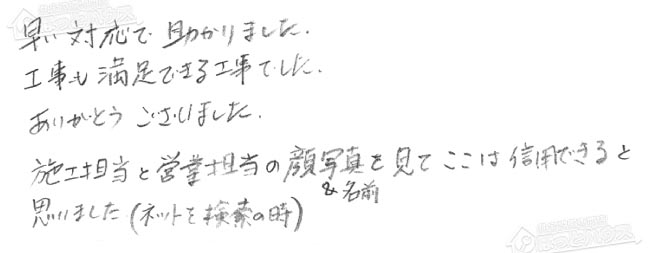 早い対応で助かりました.
工事も満足できる工事でした.
ありがとうございました.
施工担当と営業担当の顔写真を見てここは信用できると
&名前
思いました(ネットを検索の時)